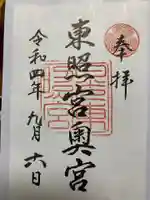 奉拝
東照宮奥宮
令和四年九月六日